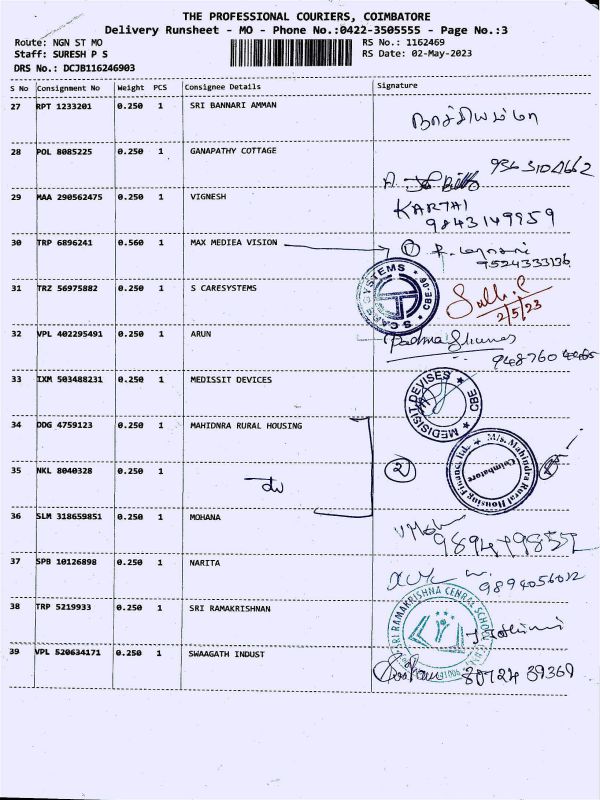 THE PROFESSIONAL COURIERS, COIMBATORE
Delivery Runsheet - MO - Phone No.:0422-3505555 - Page No.:3
Route: NGN ST MO RS No.: 1162469
Staff: SURESH P S RS Date: 02-May-2023
DRS No.: DCJB116246903
S No Consignment No Weight PCS Consignee Details Signature
27 RPT 1233201 0.250 1 SRI BANNARI AMMAN
28 POL 8085225 0.250 1 GANAPATHY COTTAGE
29 MAA 290562475 0.250 1 VIGNESH KARTAI
9843149959
30 TRP 6896241 0.560 1 MAX MEDIEA VISION 1
9524333136
31 TRZ 56975882 0.250 1 S CARESYSTEMS S CARE SYSTEMS CBE-06
2/5/23
32 VPL 402295491 0.250 1 ARUN Padma
33 IXM 503488231 0.250 1 MEDISSIT DEVICES MEDISISIT DEVISES CBE
34 DDG 4759123 0.250 1 MAHIDNRA RURAL HOUSING M/s. Mahindra Rural Housing Finance Ltd. Coimbatore
35 NKL 8040328 0.250 1 2
36 SLM 318659851 0.250 1 MOHANA
37 SPB 10126898 0.250 1 NARITA 9894056012
38 TRP 5219933 0.250 1 SRI RAMAKRISHNAN SRI RAMAKRISHNA CENRAL SCHOOL
39 VPL 520634171 0.250 1 SWAAGATH INDUST 80724 39369